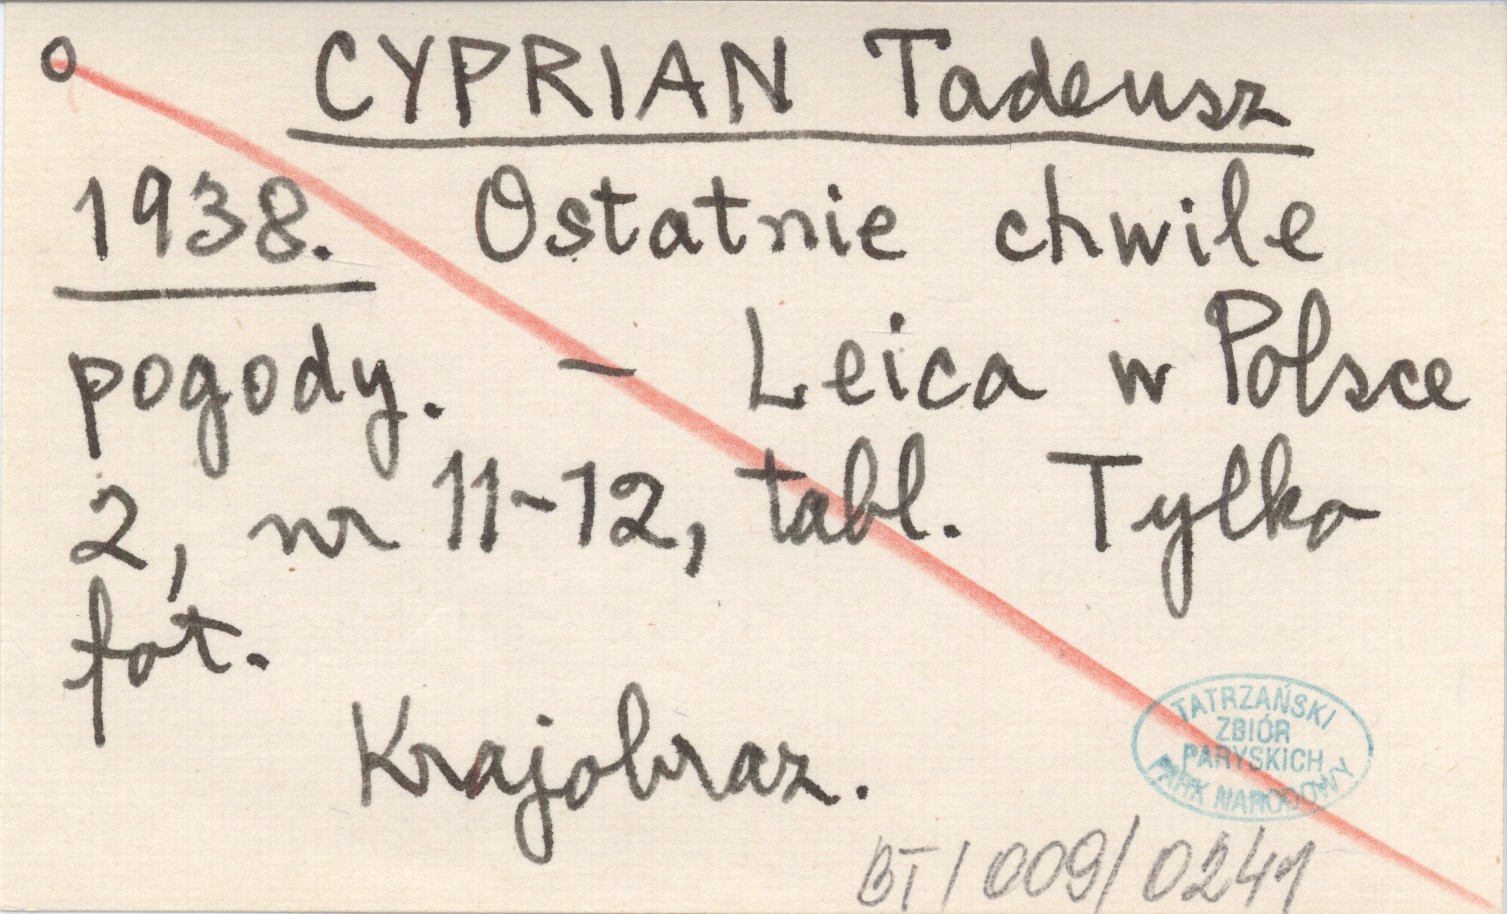 o CYPRIAN Tadeusz
1938. Ostatnie chwile
pogody. — Leica w Polsce
2, nr 11-12, tabl. Tylko
fot.
Krajobraz.
TATRZAŃSKI
ZBIÓR
PARYSKICH
PARK NARODOWY
BT/009/0241